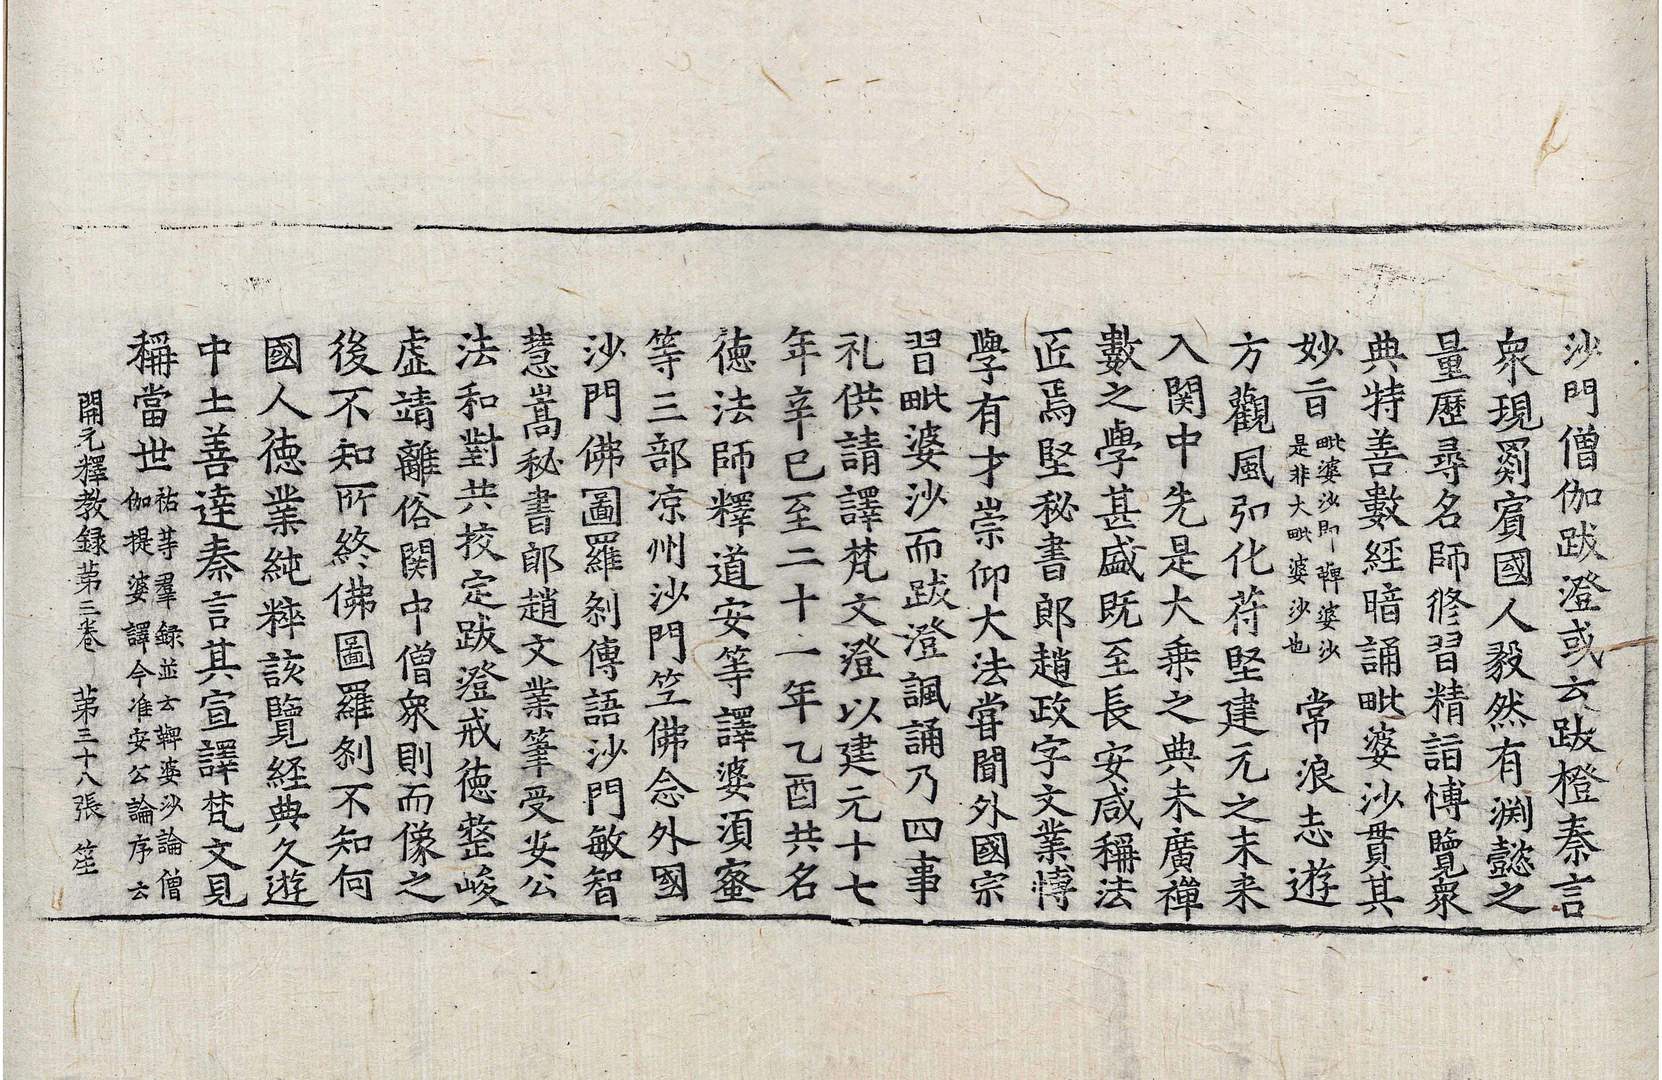 沙門僧伽跋澄或云跋橙秦言
衆現罽賓國人毅然有渊懿之
量歷尋名師修習精詣博覽衆
典特善數經暗誦毗婆沙貫其
妙旨毗婆沙即鞞婆沙是非大毗婆沙也常浪志遊
方觀風弘化苻堅建元之末来
入関中先是大乗之典未廣禅
數之學甚盛既至長安咸稱法
匠焉堅秘書郎趙政字文業博
學有才崇仰大法甞聞外國宗
習毗婆沙而跋澄諷誦乃四事
礼供請譯梵文澄以建元十七
年辛巳至二十一年乙酉共名
徳法師釋道安等譯婆湏蜜
等三部凉州沙門竺佛念外國
沙門佛圖羅刹傳語沙門敏智
慧嵩秘書郎趙文業筆受安公
法和對共校定跋澄戒徳整峻
虚靖離俗関中僧衆則而像之
後不知所終佛圖羅刹不知何
國人徳業純粹該覽経典久遊
中土善達秦言其宣譯梵文見
稱當世祐等羣録並云鞞婆沙論僧伽提婆譯今准安公論序云
開元釋教録第三卷　第三十八張　笙